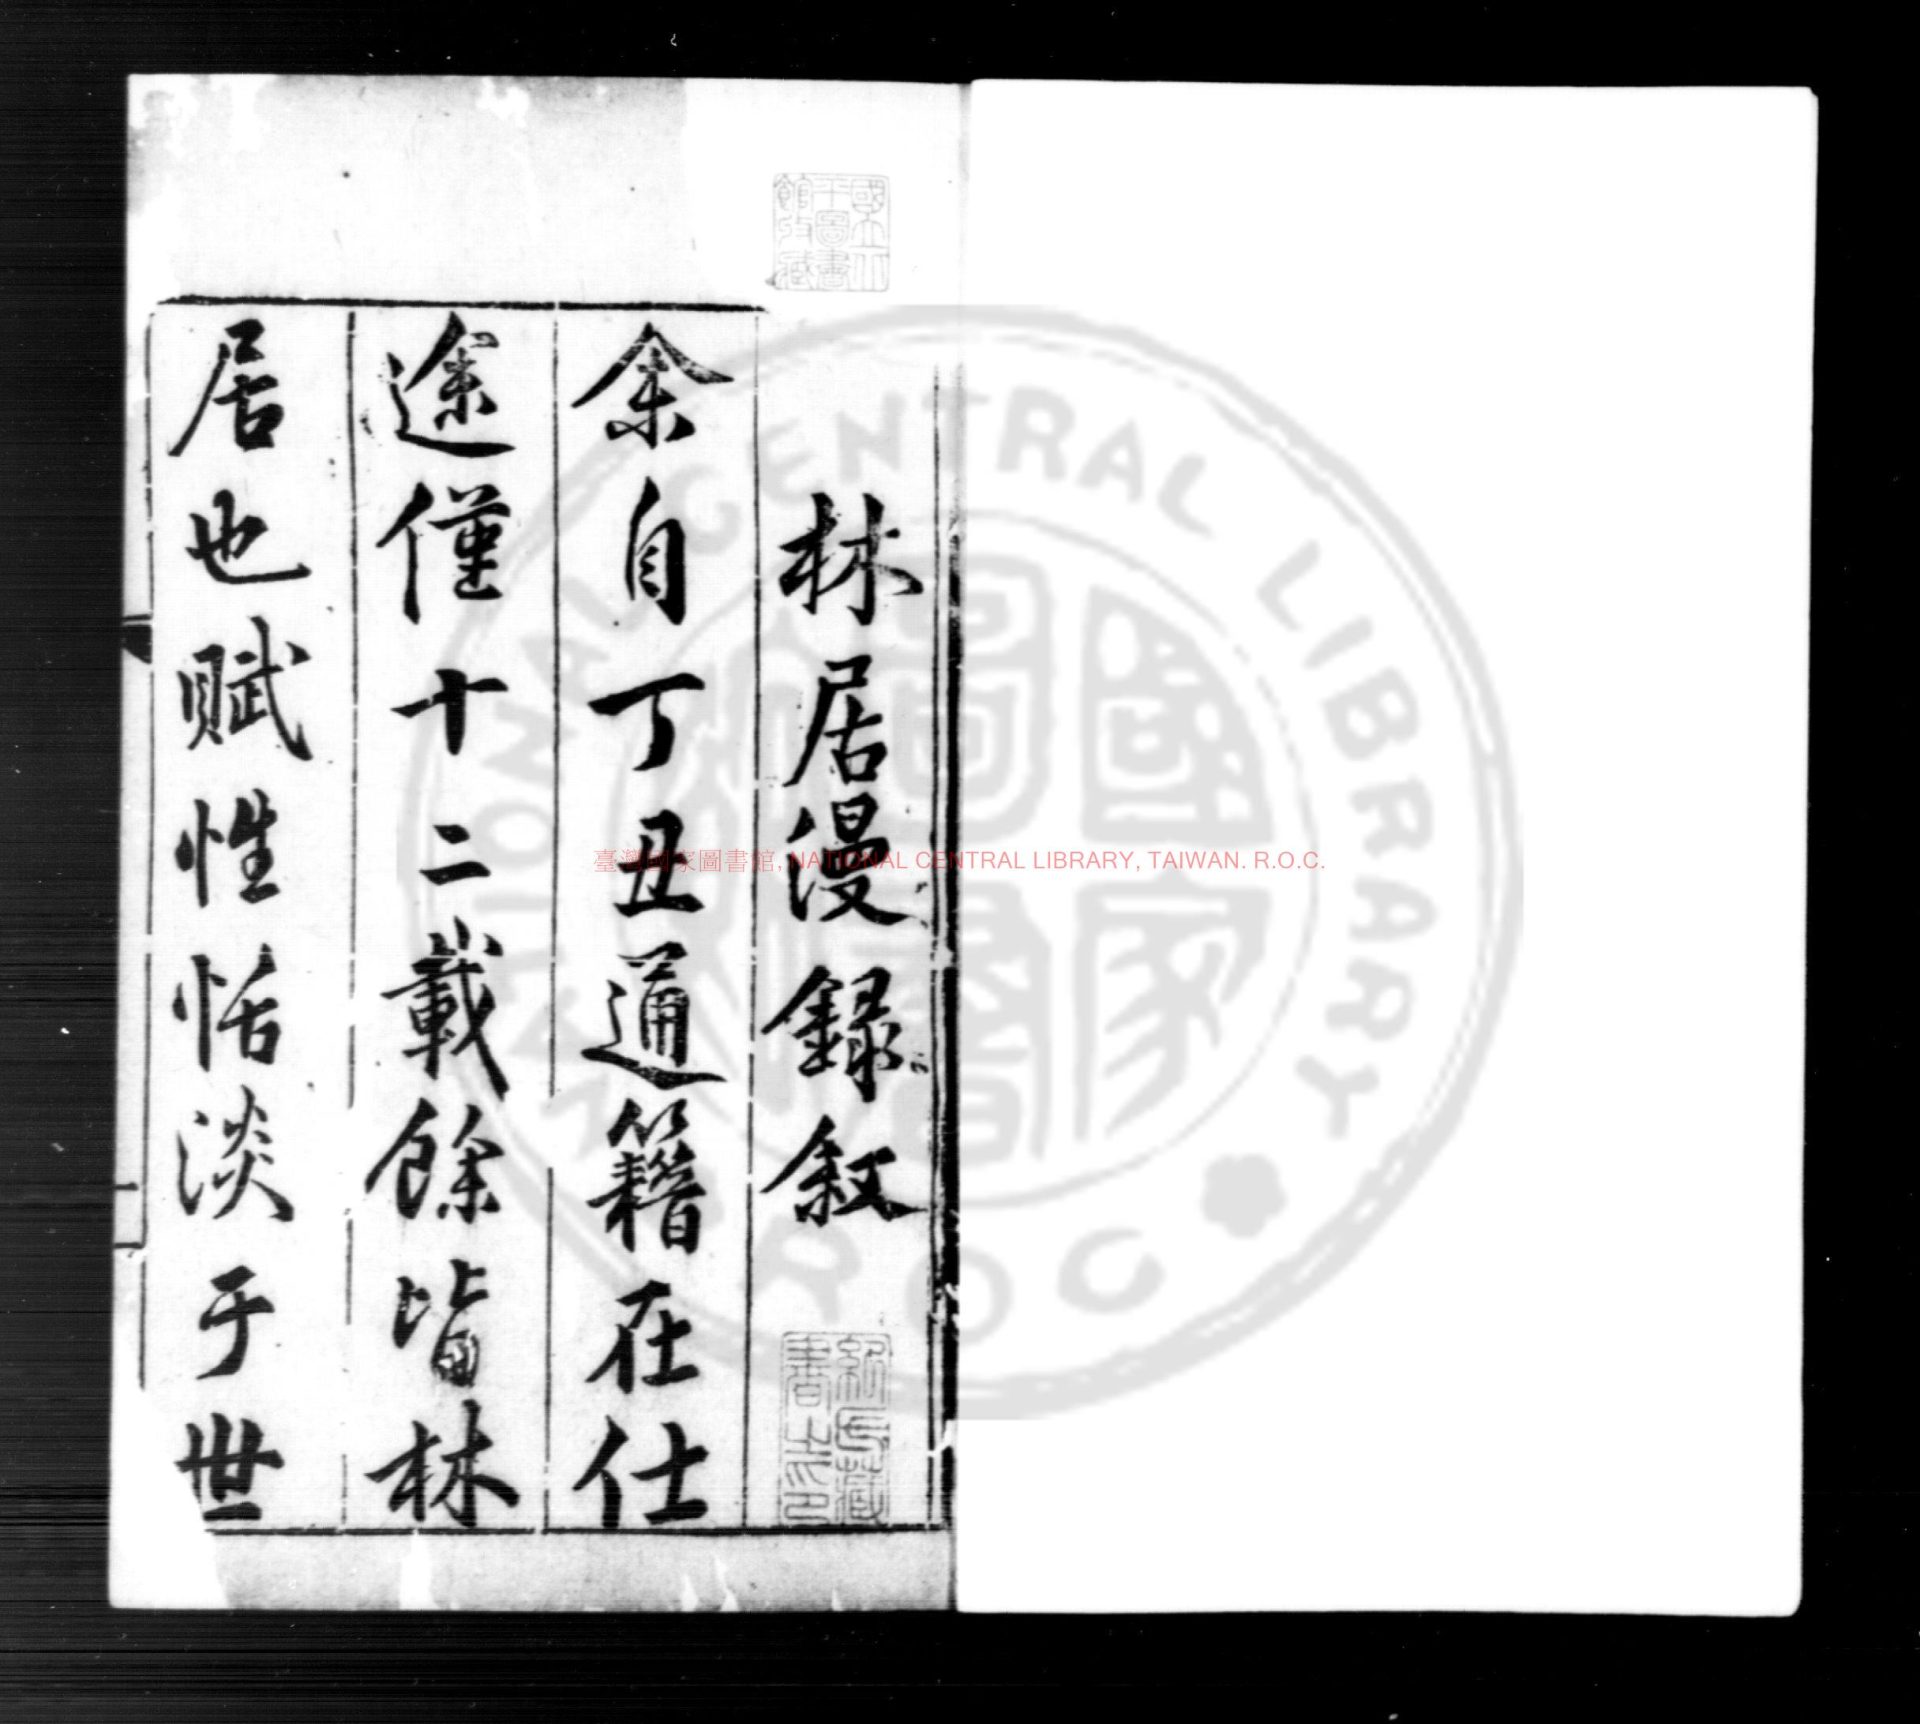 林居漫錄敘
余自丁丑通籍在仕
途僅十二載餘皆林
居也賦性恬淡于世
國立中央圖書館收藏
臺灣國家圖書館, NATIONAL CENTRAL LIBRARY, TAIWAN. R.O.C.
NATIONAL CENTRAL LIBRARY R.O.C
國家圖書館